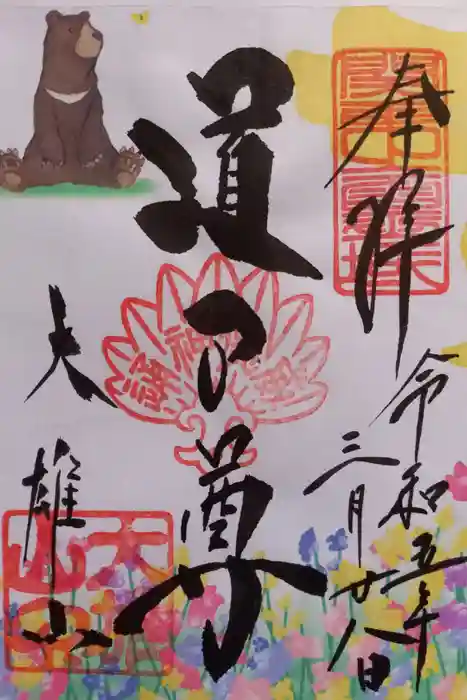 奉拝
令和五年
三月廿八日
道了尊
大雄山